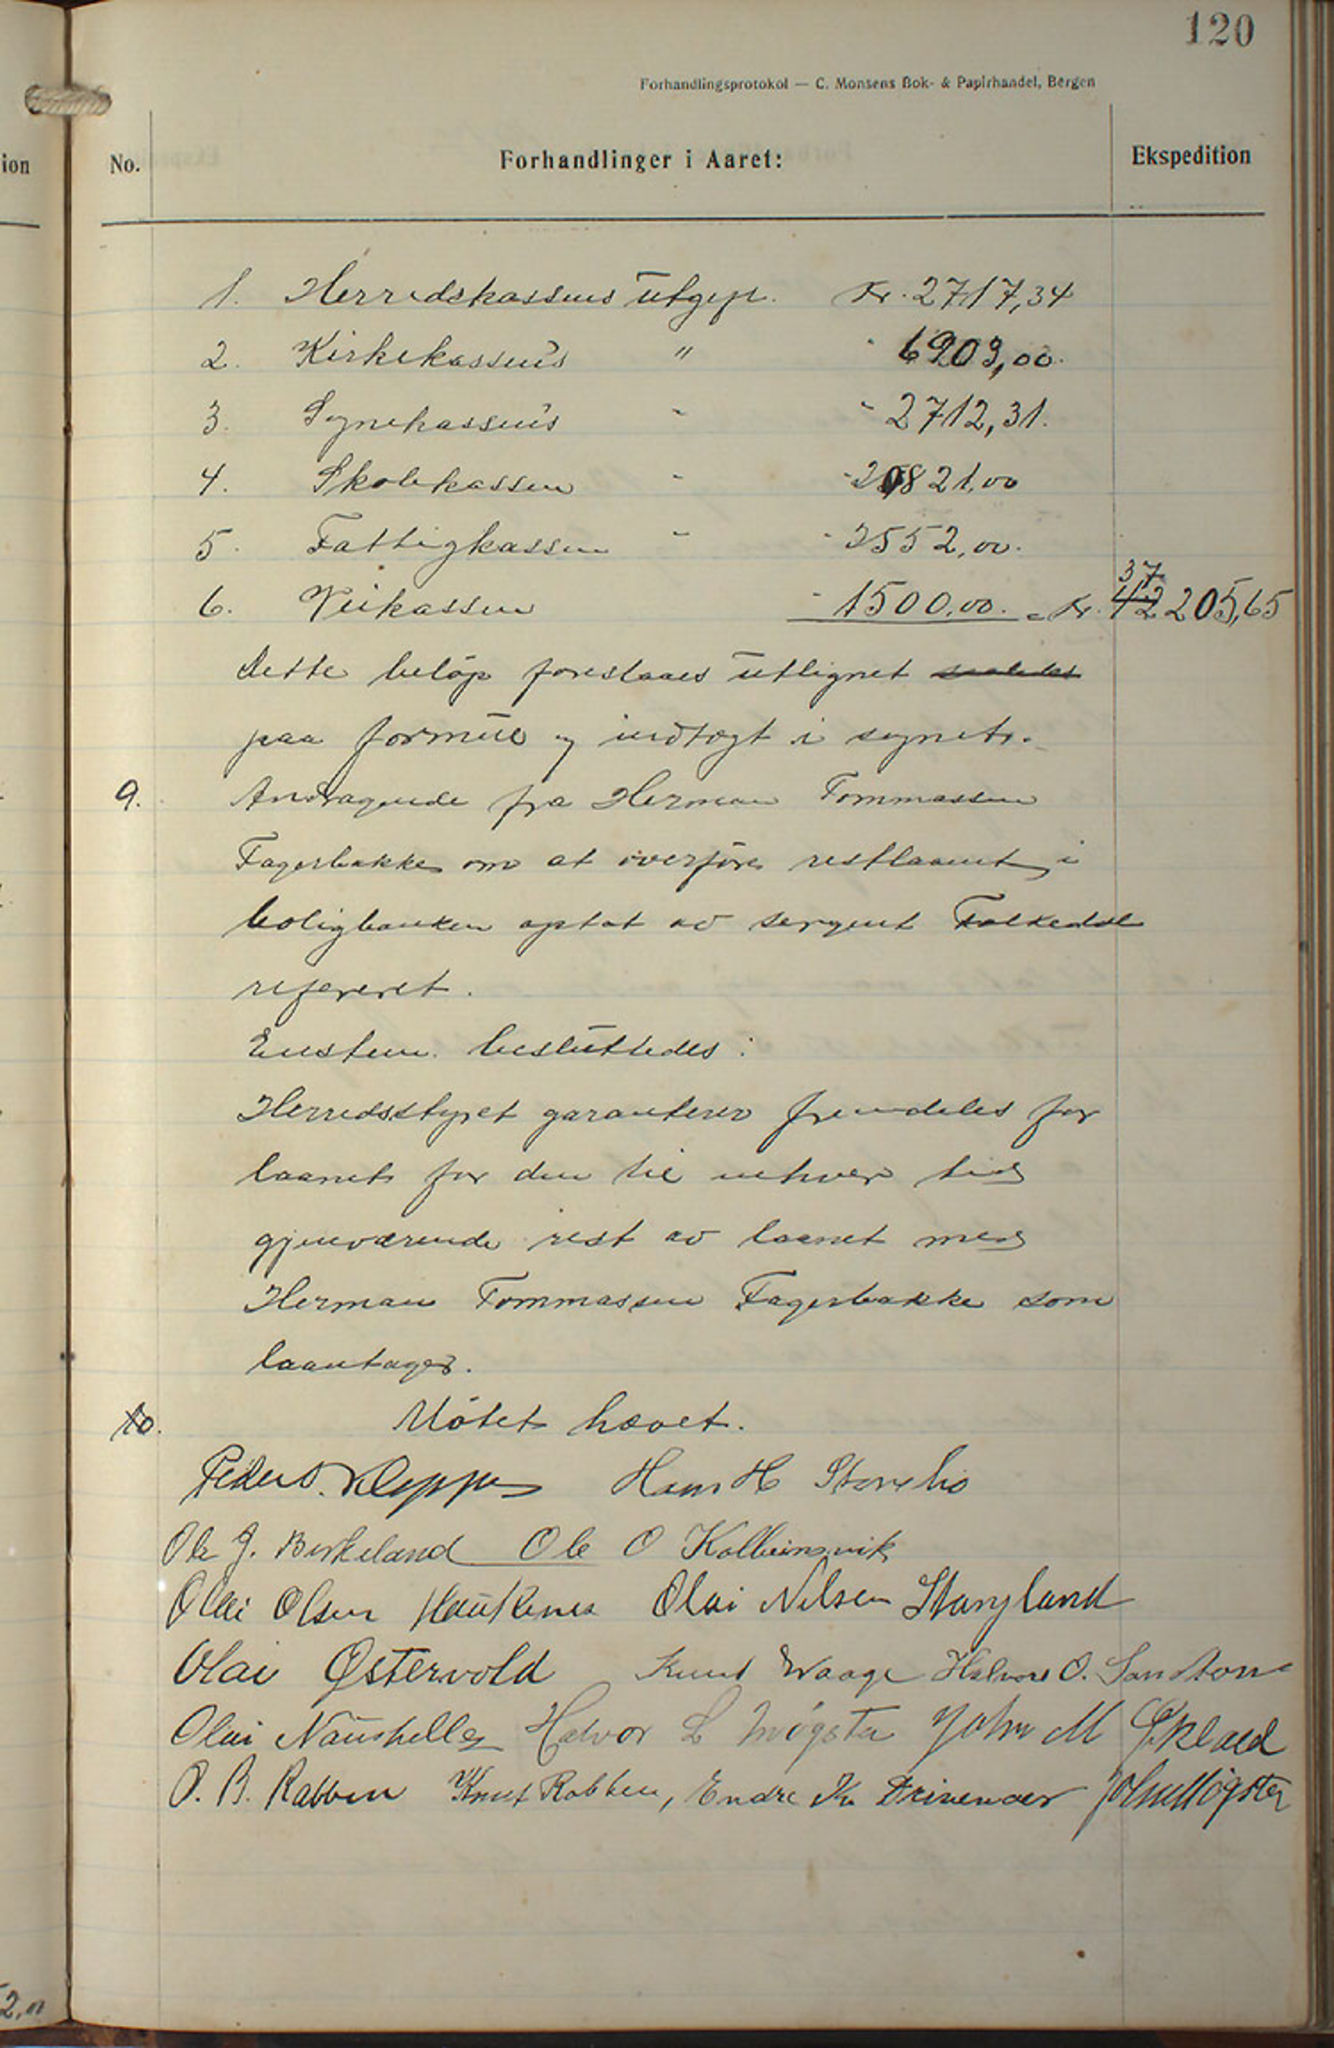 120
Forhandlingsprotokol — C. Monsens Bok- & Papirhandel, Bergen
ion
No. Forhandlinger i Aaret: Ekspedition
1. Herredskassens utgift. Kr. 2717,34
2. Kirkekassens " " 6909,00.
3. Sognekassens " " 2712,31.
4. Skolekassen " " 20821,00
5. Fattigkassen " " 2552,00.
37
6. Veikassen " 1500,00. = Kr. 42205,65
Dette beløp foreslaaes utlignet saaledes
paa formue og indtægt i sognet.
9. Andragende fra Herman Tommassen
Fagerbakke om at overføre restlaanet i
boligbanken optat av sergent Falkedal
refereret.
Enstem. besluttedes:
Herredsstyret garanterer fremdeles for
laanet for den til enhver tid
gjenværende rest av laanet med
Herman Tommassen Fagerbakke som
laantager.
10. Møtet hævet.
Peder O. Kleppe Hans H Storebø
Ole J. Birkeland Ole O Kolbeinsvik
Olai Olsen Haukenes Olai Nilsen Stangeland
Olai Østervold Knut Waage Halvor O. Sandtorv
Olai Naustheller Halvor L Møgster John M Økland
O. B. Rabben Knut Rabben, Endre K. Drivenes Joh Møgster
2,00